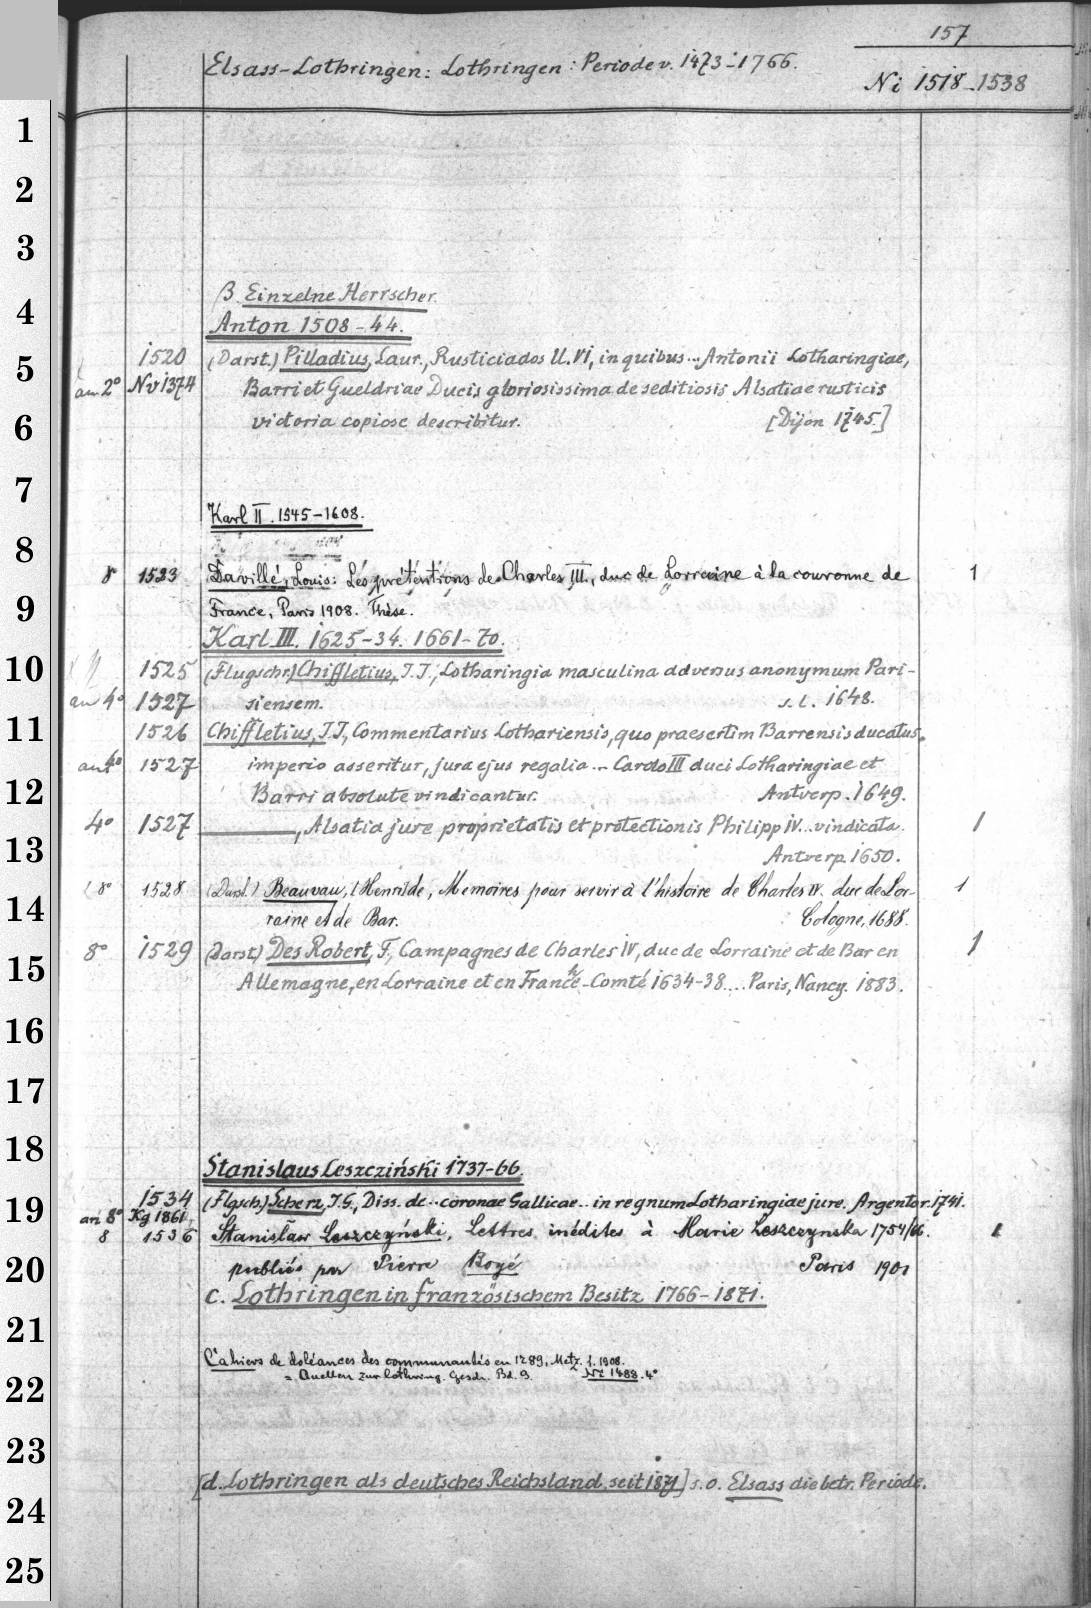 157
Elsass-Lothringen: Lothringen: Periode v. 1473-1766.
Ni 1518-1538
1
2
3
4
5
6
7
8
9
10
11
12
13
14
15
16
17
18
19
20
21
22
23
24
25
β. Einzelne Herrscher.
Anton 1508-44.
1520 (Darst.) Pilladius, Laur., Rusticiados ll. VI, in quibus... Antonii Lotharingiae,
an 2° Nv 1374 Barri et Gueldriae Ducis gloriosissima de seditiosis Alsatiae rusticis
victoria copiose describitur. [Dijon 1745.]
Karl II. 1545-1608.
8 1523 Davillé, Louis: Les prétentions de Charles III., duc de Lorraine à la couronne de 1
France, Paris 1908. Thèse.
Karl III. 1625-34. 1661-70.
1525 (Flugschr.) Chiffletius, J. J., Lotharingia masculina adversus anonymum Pari-
an 4° 1527 siensem. s. l. 1648.
1526 Chiffletius, J. J., Commentarius Lothariensis, quo praesertim Barrensis ducatus
an 4° 1527 imperio asseritur, jura ejus regalia ... Carolo III duci Lotharingiae et
Barri absolute vindicantur. Antverp. 1649.
4° 1527 ———, Alsatia jure proprietatis et protectionis Philipp IV... vindicata. 1
Antverp. 1650.
8° 1528 (Darst.) Beauvau, Henri de, Memoires pour servir à l'histoire de Charles IV. duc de Lor- 1
raine et de Bar. Cologne, 1688.
8° 1529 (Darst.) Des Robert, F., Campagnes de Charles IV, duc de Lorraine et de Bar en 1
Allemagne, en Lorraine et en Franche-Comté 1634-38.... Paris, Nancy. 1883.
Stanislaus Leszcziński 1737-66.
1534 (Flgsch.) Scherz, J. G., Diss. de... coronae Gallicae... in regnum Lotharingiae jure. Argentor. 1741.
an 8° Kg 1861
8 1536 Stanisław Leszczyński, Lettres inédites à Marie Leszczynska 1754/66. 1
publiés par Pierre Boyé Paris 1901
c. Lothringen in französischem Besitz 1766-1871.
Cahiers de doléances des communautés en 1789, Metz. 1. 1908.
= Quellen zur lothring. Gesch. Bd. 9. Ni 1488. 4°
[d. Lothringen als deutsches Reichsland seit 1871] s. o. Elsass die betr. Periode.